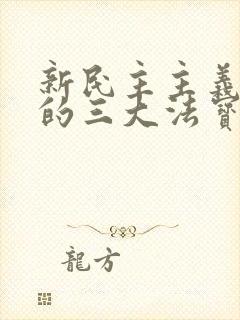 新民主主義
的三大法寶
龍方